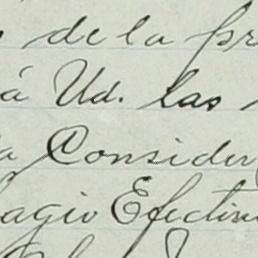 de la pr
á Ud. las
a Consider
agio Efectiv